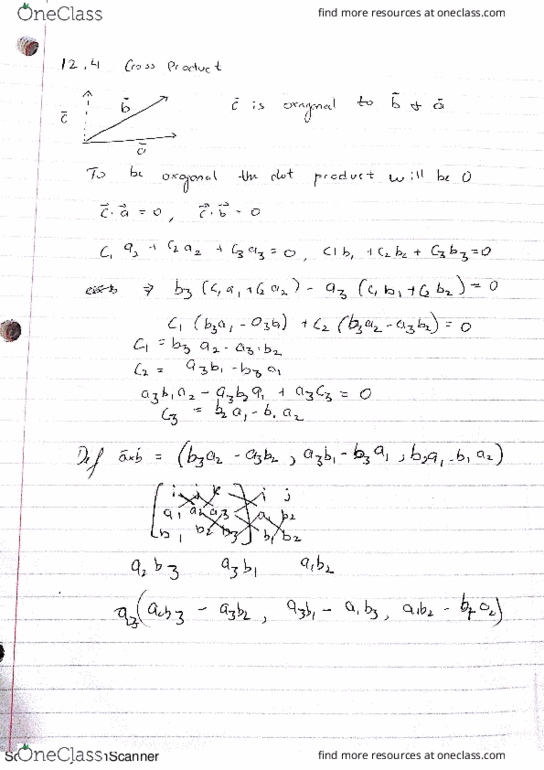 OneClass find more resources at oneclass.com
12.4 Cross Product
c̄ b̄ c̄ is oxagonal to b̄ & ā
ā
To be oxogonal the dot product will be 0
c⃗·a⃗ = 0, c⃗·b⃗ = 0
C₁ a₁ + C₂a₂ + C₃a₃ = 0, C1b₁ + C₂b₂ + C₃b₃ = 0
⇒ b₃(C₁a₁ + C₂a₂) - a₃(C₁b₁ + C₂b₂) = 0
C₁(b₃a₁ - a₃b₁) + C₂(b₃a₂ - a₃b₂) = 0
C₁ = b₃a₂ - a₃·b₂
C₂ = a₃b₁ - b₃a₁
a₃b₁a₂ - a₃b₂a₁ + a₃C₃ = 0
C₃ = b₂a₁ - b₁a₂
Def ā×b̄ = (b₃a₂ - a₃b₂, a₃b₁ - b₃a₁, b₂a₁ - b₁a₂)
[i j k] i j
a₁ a₂ a₃ a₁ b₂
b₁ b₂ b₃ b₁ b₂
a₂b₃ a₃b₁ a₁b₂
(a₂b₃ - a₃b₂, a₃b₁ - a₁b₃, a₁b₂ - b₁a₂)
OneClass Scanner find more resources at oneclass.com